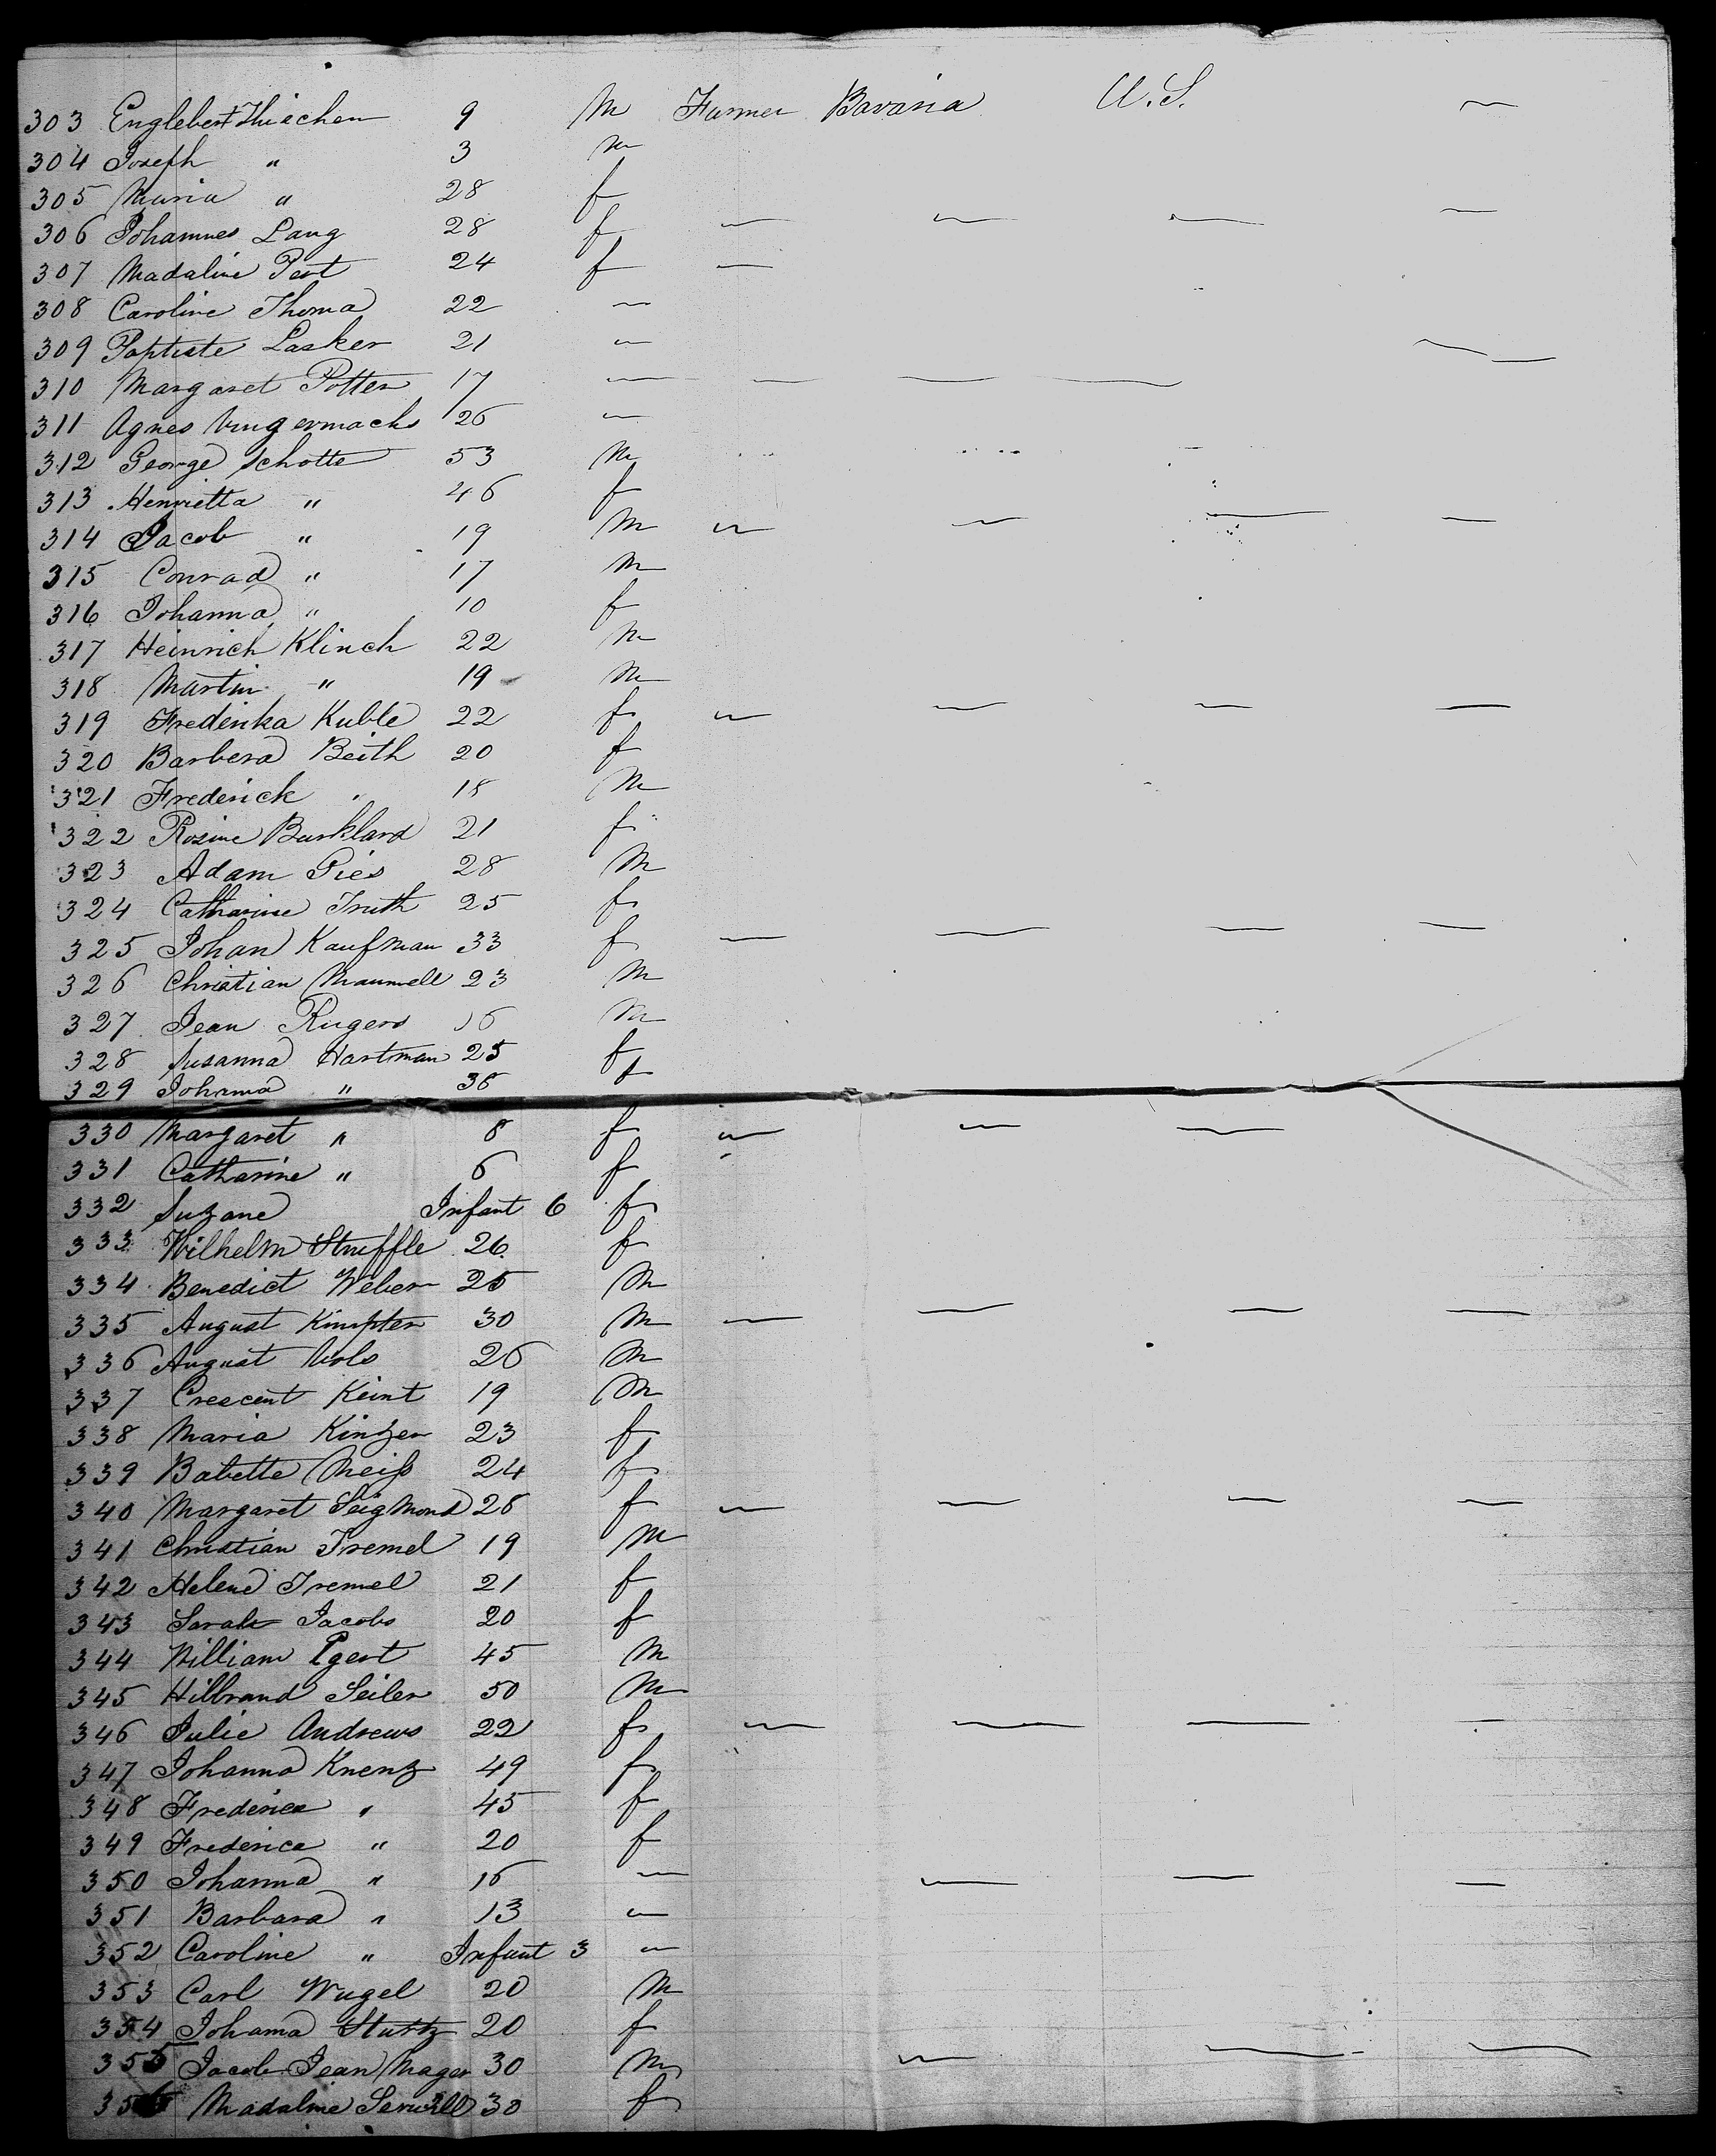 303 Englebert Thiechen 9 M Farmer Bavaria U.S. —
304 Joseph " 3 m
305 Maria " 28 f
306 Johannes Lang 28 f — — — —
307 Madaline Pest 24 f —
308 Caroline Thoma 22 —
309 Baptiste Lasker 21 — —
310 Margaret Potter 17 — — — —
311 Agnes 26 —
312 George Schotte 53 m
313 Henrietta " 46 f
314 Jacob " 19 m — — — —
315 Conrad " 17 m
316 Johanna " 10 f
317 Heinrich Klinch 22 m
318 Martin " 19 m
319 Fredericka Kuble 22 f — — — —
320 Barbera Beith 20 f
321 Frederick " 18 m
322 Rosine Burkland 21 f
323 Adam Gies 28 m
324 Catharine Truth 25 f
325 Johan Kaufman 33 f — — — —
326 Christian Maunwell 23 m
327 Jean Rugers 16 m
328 Susanna Hartman 25 f
329 Johanna " 36 f
330 Margaret " 8 f — — —
331 Catharine " 6 f
332 Suzane Infant 6 f
333 Wilhelm Struffle 26 f
334 Benedict Weber 25 m
335 August Kimpter 30 m — — — —
336 August Vols 26 m
337 Crescent Keint 19 m
338 Maria Kinzer 23 f
339 Babette Meiß 24 f
340 Margaret Seigmond 28 f — — — —
341 Christian Tremel 19 m
342 Helene Tremel 21 f
343 Sarah Jacobs 20 f
344 William Pgert 45 m
345 Hilbrand Seiler 50 m
346 Julie Andrews 22 f — — — —
347 Johanna Knenz 49 f
348 Frederica " 45 f
349 Frederica " 20 f
350 Johanna " 16 — — — —
351 Barbara " 13 —
352 Caroline " Infant 3 —
353 Carl Wugel 20 m
354 Johanna Sturtz 20 f
355 Jacob Jean Mager 30 m — — —
356 Madaline 30 f